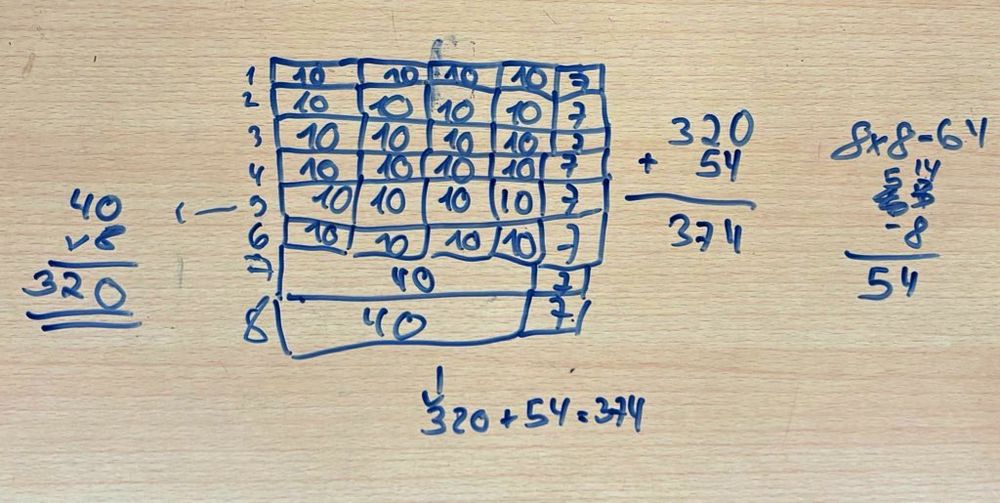 1 10 10 10 10 7
2 10 10 10 10 7
3 10 10 10 10 7
4 10 10 10 10 7
5 10 10 10 10 7
6 10 10 10 10 7
7 40 7
8 40 7
40
x8
320
320
+ 54
374
8x8=64
5 14
-8
54
320+54=374